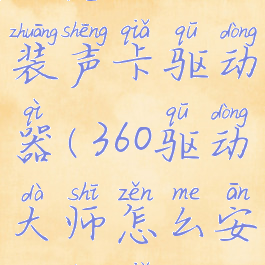 zhuāng shēng qiǎ qū dòng
装声卡驱动
qì qū dòng
器(360驱动
dà shī zěn me ān
大师怎么安